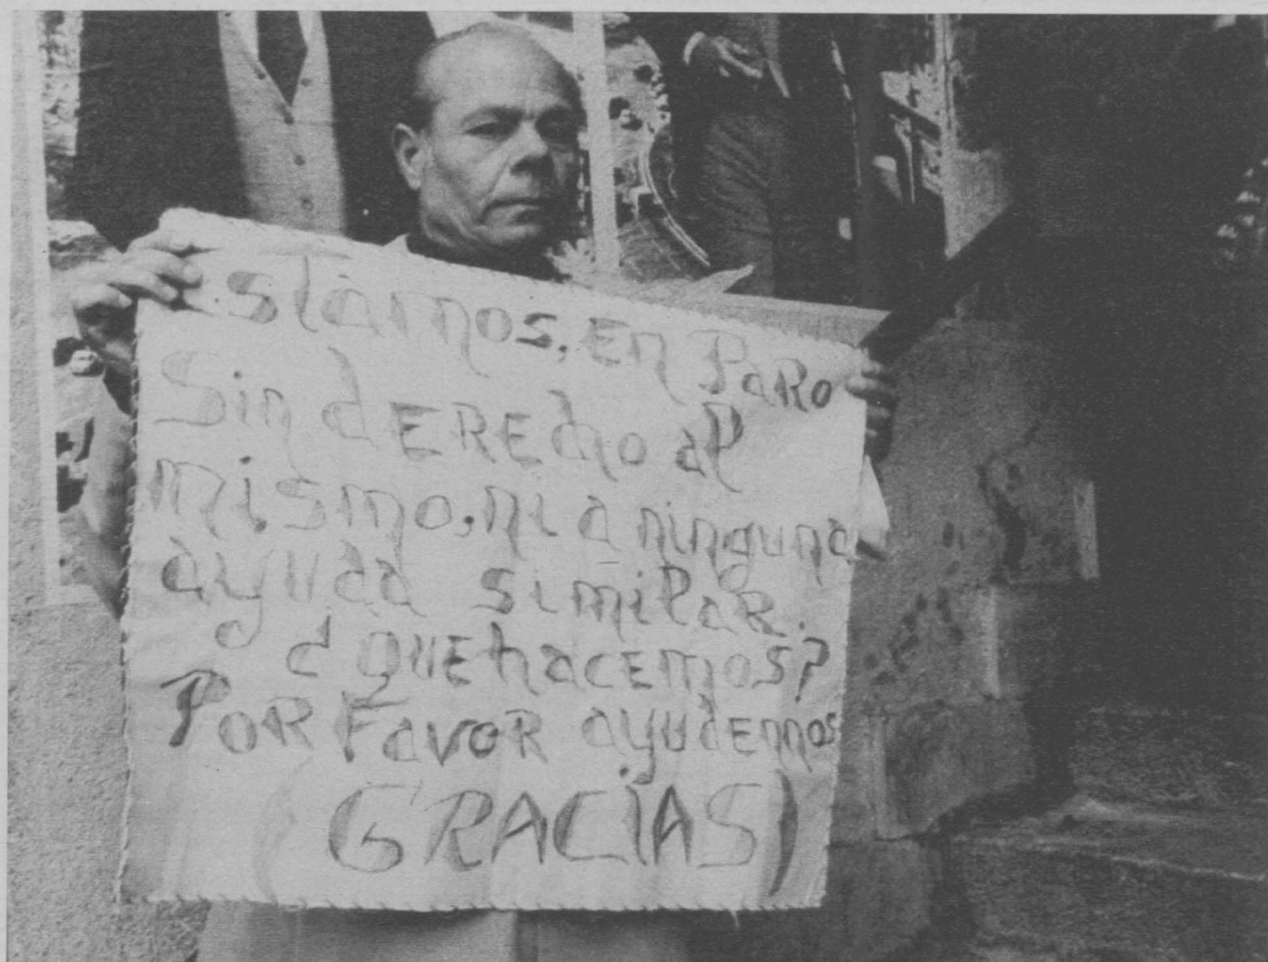 Estamos, En PaRo
Sin dEREcho al
mismo, ni a ninguna
ayuda similaR.
¿ QUE hacEmos?
PoR Favor ayudEnnos
(GRACiAS)